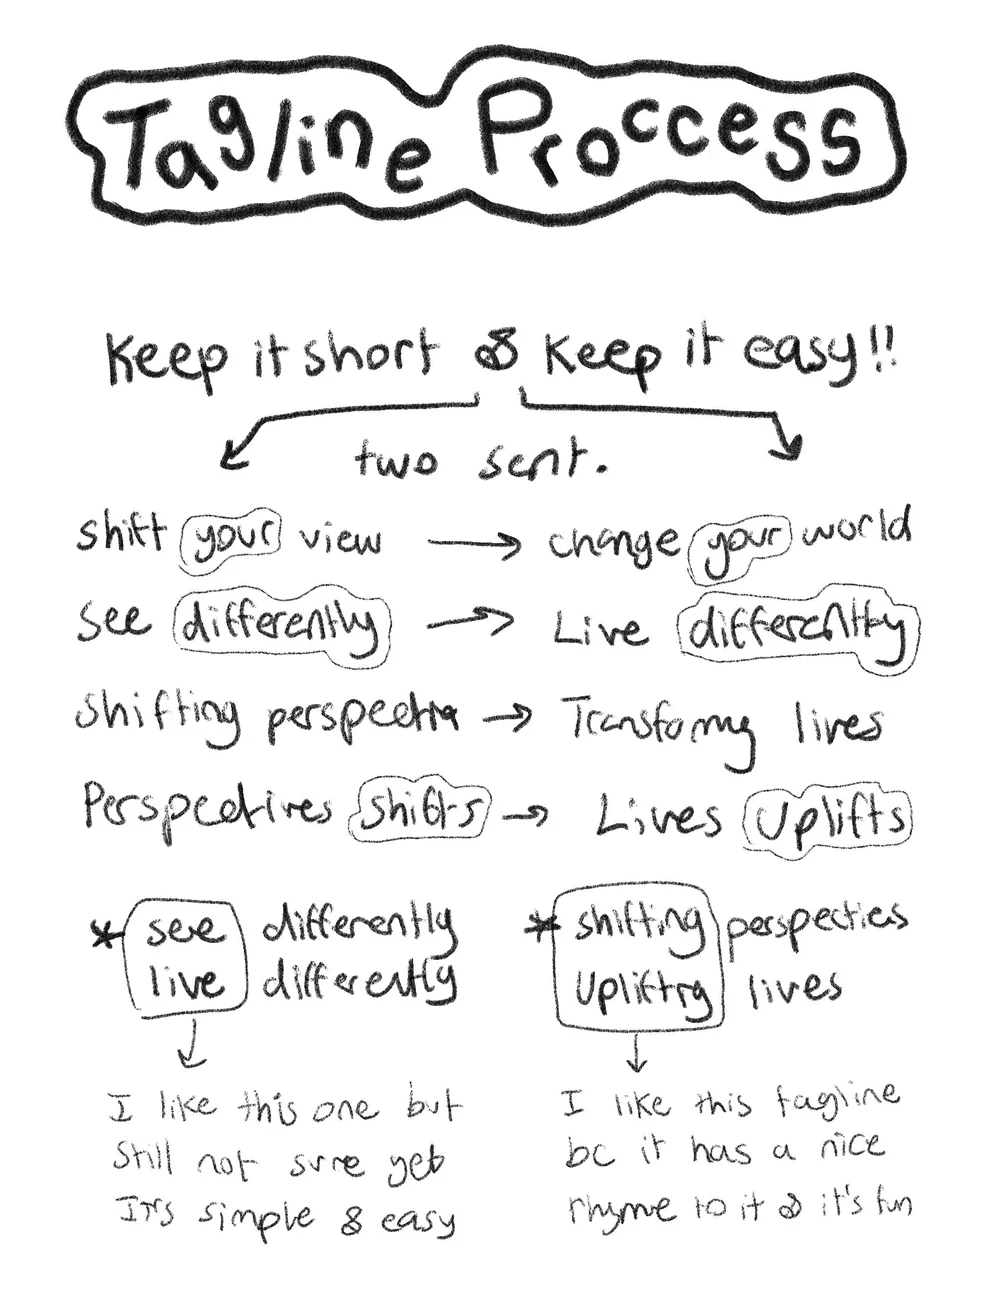 Tagline Proccess
Keep it short & Keep it easy!!
two sent.
shift your view → change your world
see differently → Live differently
Shifting → lives
Perspectives shifts → Lives Uplifts
* see differently
live differently
* shifting
lives
I like this one but
Still not sure yet
It's simple & easy
I like this tagline
bc it has a nice
rhyme to it & it's fun